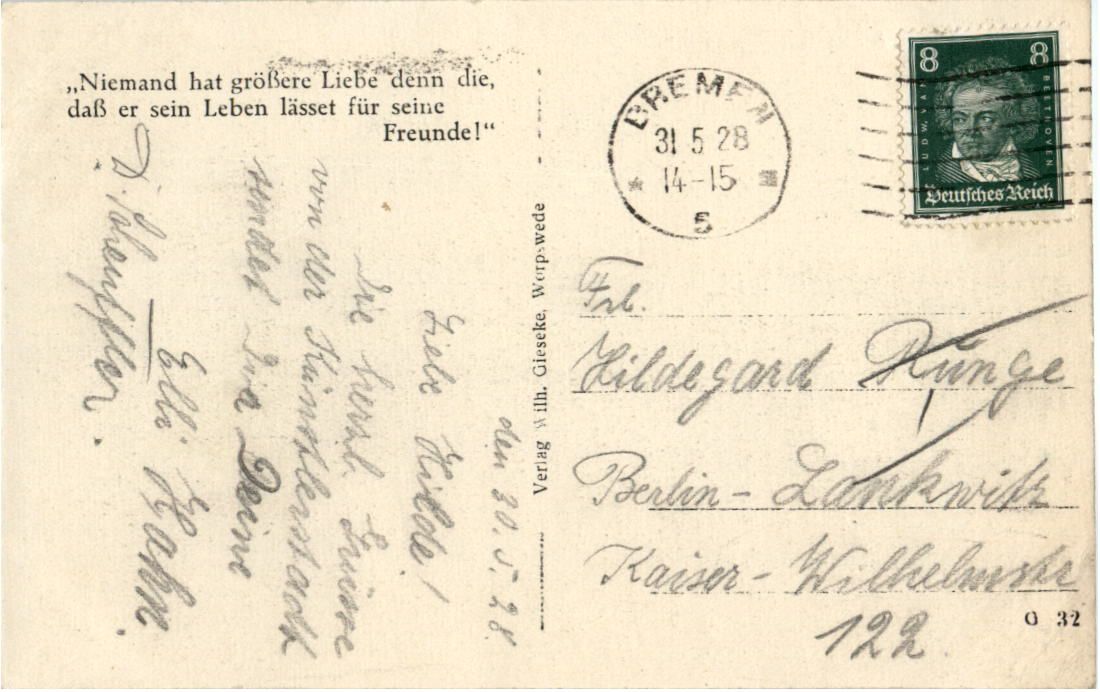 „Niemand hat größere Liebe denn die,
daß er sein Leben lässet für seine
Freunde!“
den 30.5.28
Liebe Hilde!
Die herzl. Grüsse
von der Künstlerstadt
sendet Dir Deine
Elli Hahn.
Verlag Wilh. Gieseke, Worpswede
BREMEN
31 5 28
14-15
5
8 8
LUDW. VAN
BEETHOVEN
Deutsches Reich
Frl.
Hildegard Runge
Berlin-Lankwitz
Kaiser-Wilhelmstr
122
G 32